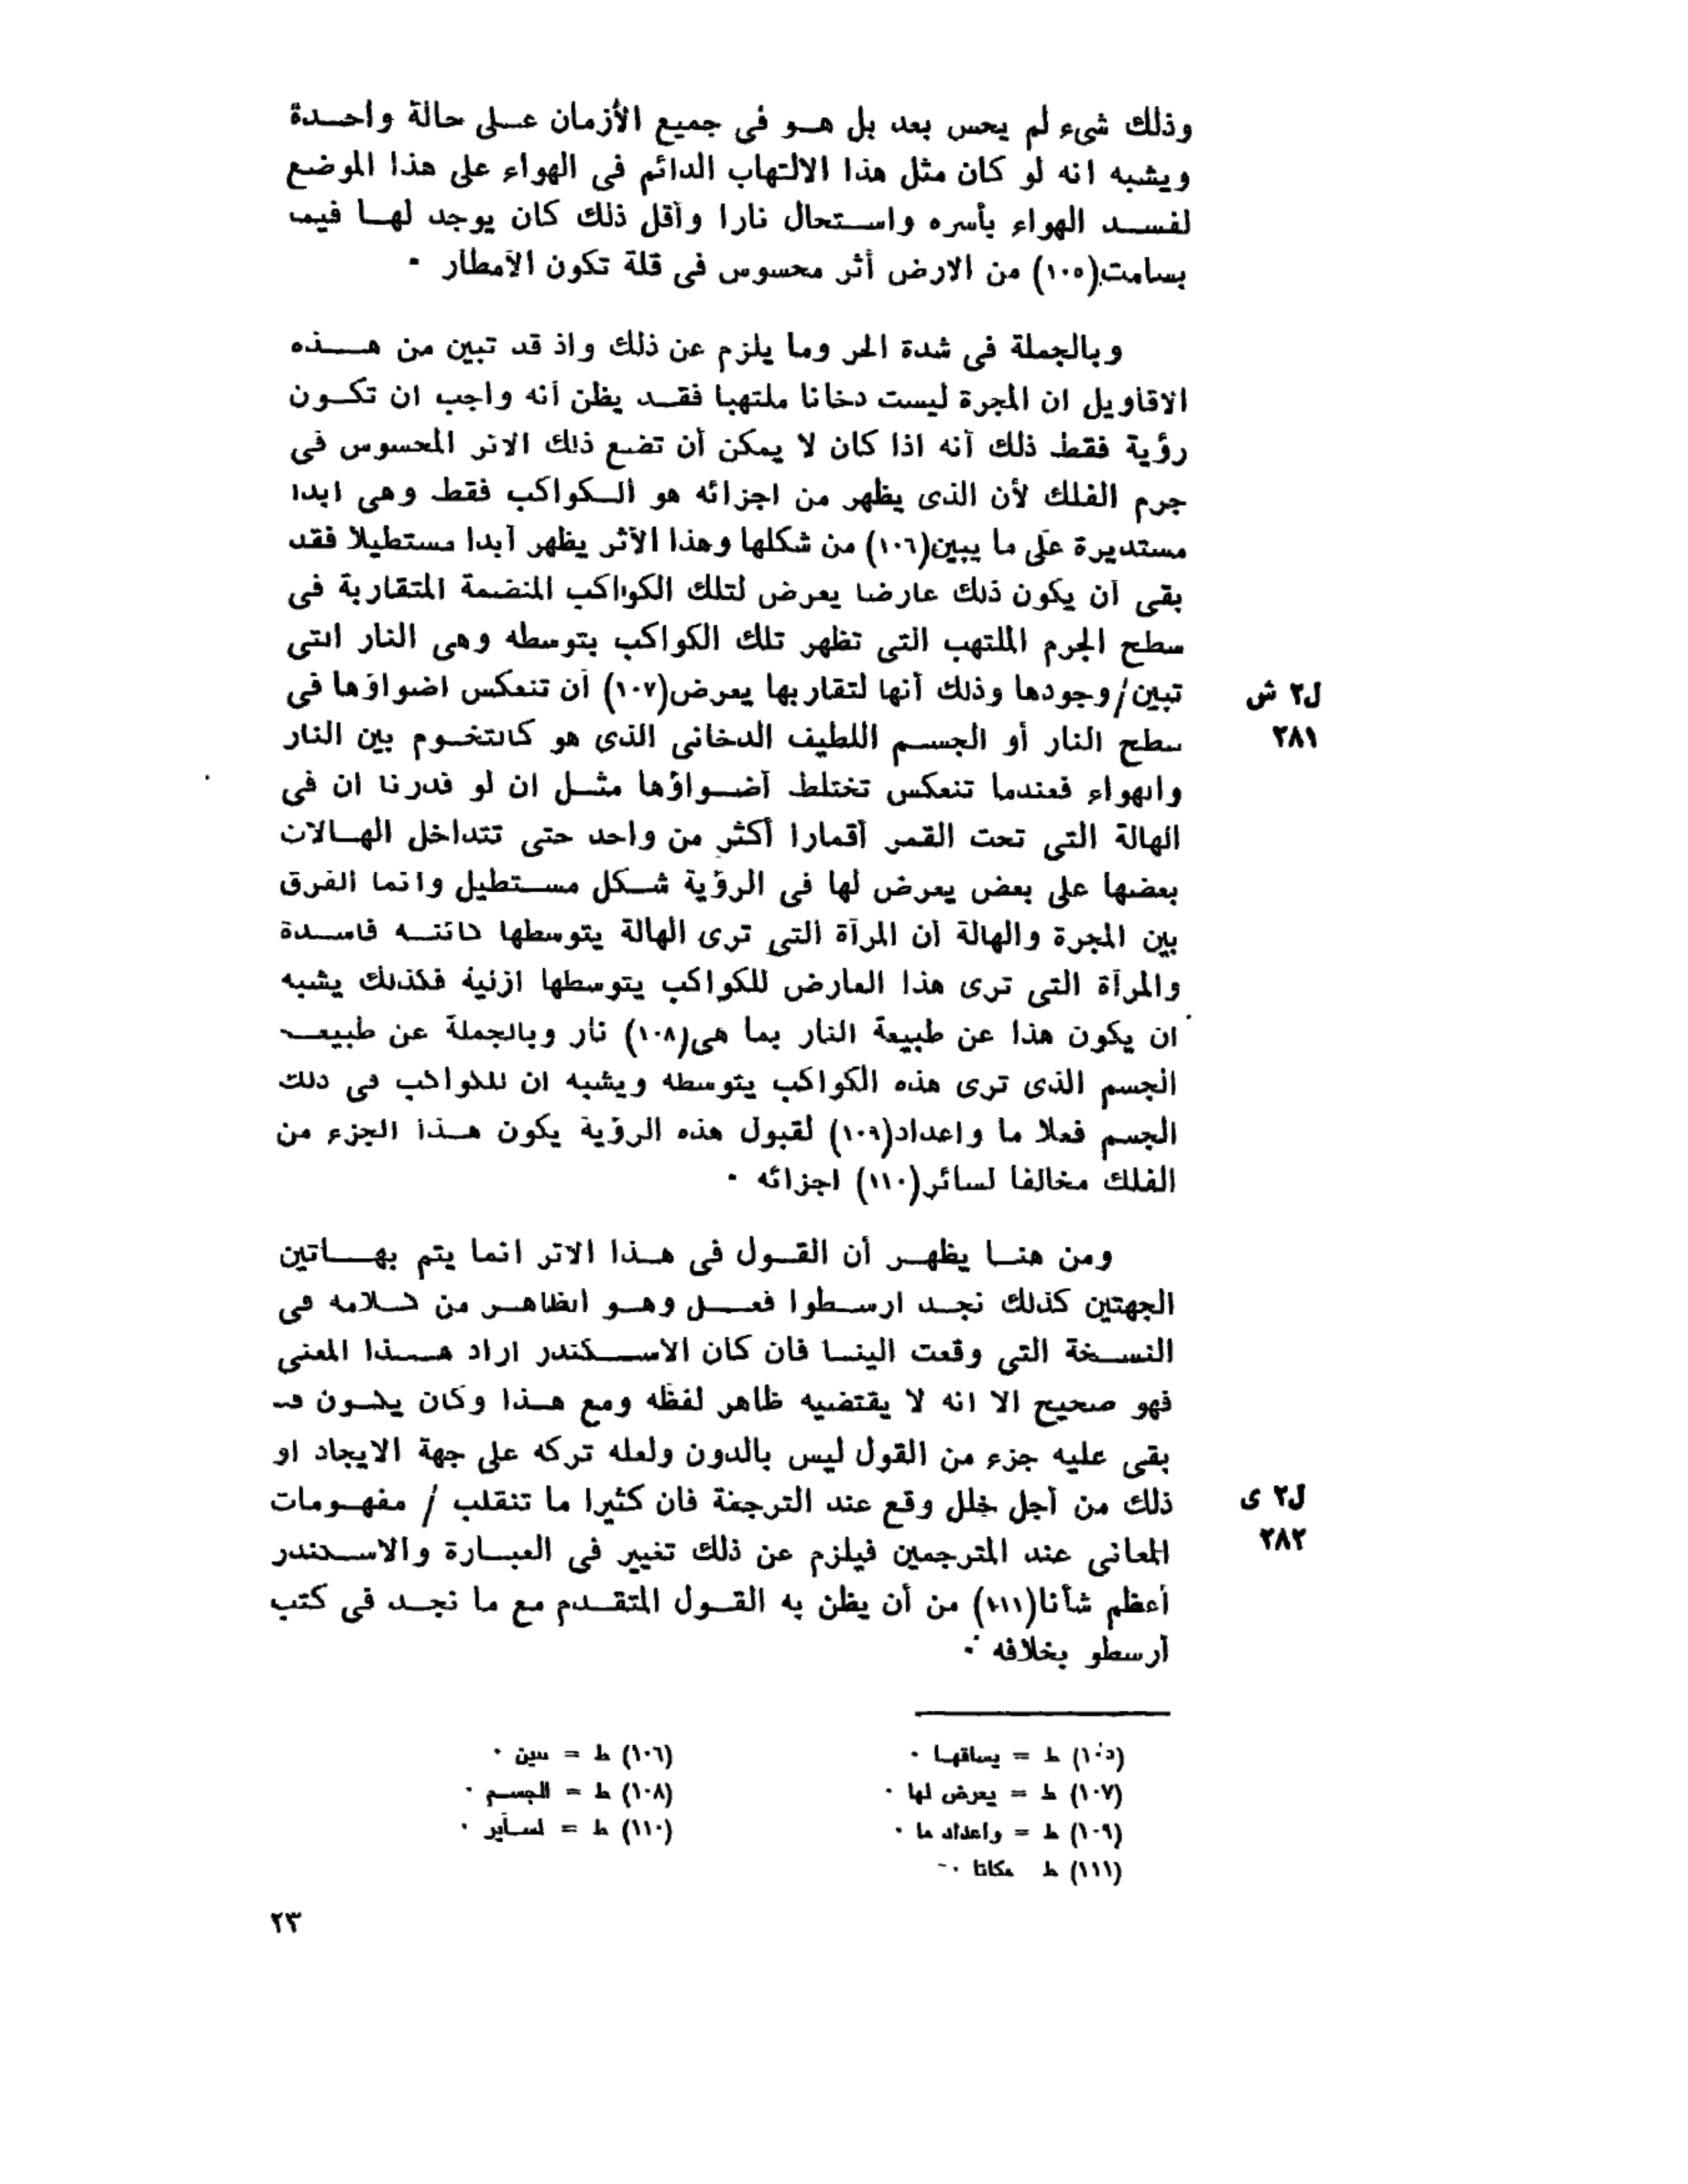 وذلك شىء لم يحس بعد بل هو فى جميع الأزمان على حالة واحدة
ويشبه انه لو كان مثل هذا الالتهاب الدائم فى الهواء على هذا الموضع
لفسد الهواء بأسره واستحال نارا وأقل ذلك كان يوجد لها فيما
بسامت(١٠٥) من الارض أثر محسوس فى قلة تكون الأمطار ٠
وبالجملة فى شدة الحر وما يلزم عن ذلك واذ قد تبين من هذه
الاقاويل ان المجرة ليست دخانا ملتهبا فقد يظن أنه واجب ان تكون
رؤية فقط ذلك أنه اذا كان لا يمكن أن تضع ذلك الاثر المحسوس فى
جرم الفلك لأن الذى يظهر من اجزائه هو الكواكب فقط وهى ابدا
مستديرة على ما يبين(١٠٦) من شكلها وهذا الأثر يظهر أبدا مستطيلا فقد
بقى أن يكون ذلك عارضا يعرض لتلك الكواكب المنضمة المتقاربة فى
سطح الجرم الملتهب التى تظهر تلك الكواكب بتوسطه وهى النار التى
تبين/وجودها وذلك أنها لتقاربها يعرض(١٠٧) أن تنعكس اضواؤها فى
ل٢ ش
٢٨١
سطح النار أو الجسم اللطيف الدخانى الذى هو كالتخوم بين النار
والهواء فعندما تنعكس تختلط أضواؤها مثل ان لو قدرنا ان فى
الهالة التى تحت القمر أقمارا أكثر من واحد حتى تتداخل الهالات
بعضها على بعض يعرض لها فى الرؤية شكل مستطيل وانما الفرق
بين المجرة والهالة أن المرآة التى ترى الهالة يتوسطها كائنه فاسدة
والمرآة التى ترى هذا العارض للكواكب يتوسطها ازلية فكذلك يشبه
ان يكون هذا عن طبيعة النار بما هى(١٠٨) نار وبالجملة عن طبيعه
الجسم الذى ترى هذه الكواكب يتوسطه ويشبه ان للكواكب فى ذلك
الجسم فعلا ما واعداد(١٠٩) لقبول هذه الرؤية يكون هذا الجزء من
الفلك مخالفا لسائر(١١٠) اجزائه ٠
ومن هنا يظهر أن القول فى هذا الاثر انما يتم بهاتين
الجهتين كذلك نجد ارسطوا فعل وهو الظاهر من كلامه فى
النسخة التى وقعت الينا فان كان الاسكندر اراد هذا المعنى
فهو صحيح الا انه لا يقتضيه ظاهر لفظه ومع هذا وكان يكون قد
بقى عليه جزء من القول ليس بالدون ولعله تركه على جهة الايجاد او
ذلك من أجل خلل وقع عند الترجمة فان كثيرا ما تنقلب / مفهومات
ل٢ ى
٢٨٢
المعانى عند المترجمين فيلزم عن ذلك تغيير فى العبارة والاسكندر
أعظم شأنا(١١١) من أن يظن به القول المتقدم مع ما نجد فى كتب
أرسطو بخلافه ٠
(١٠٥) ط = يساقها ٠
(١٠٦) ط = سين ٠
(١٠٧) ط = يعرض لها ٠
(١٠٨) ط = الجسم ٠
(١٠٩) ط = واعداد ما ٠
(١١٠) ط = لسأير ٠
(١١١) ط مكانا ٠
٢٣